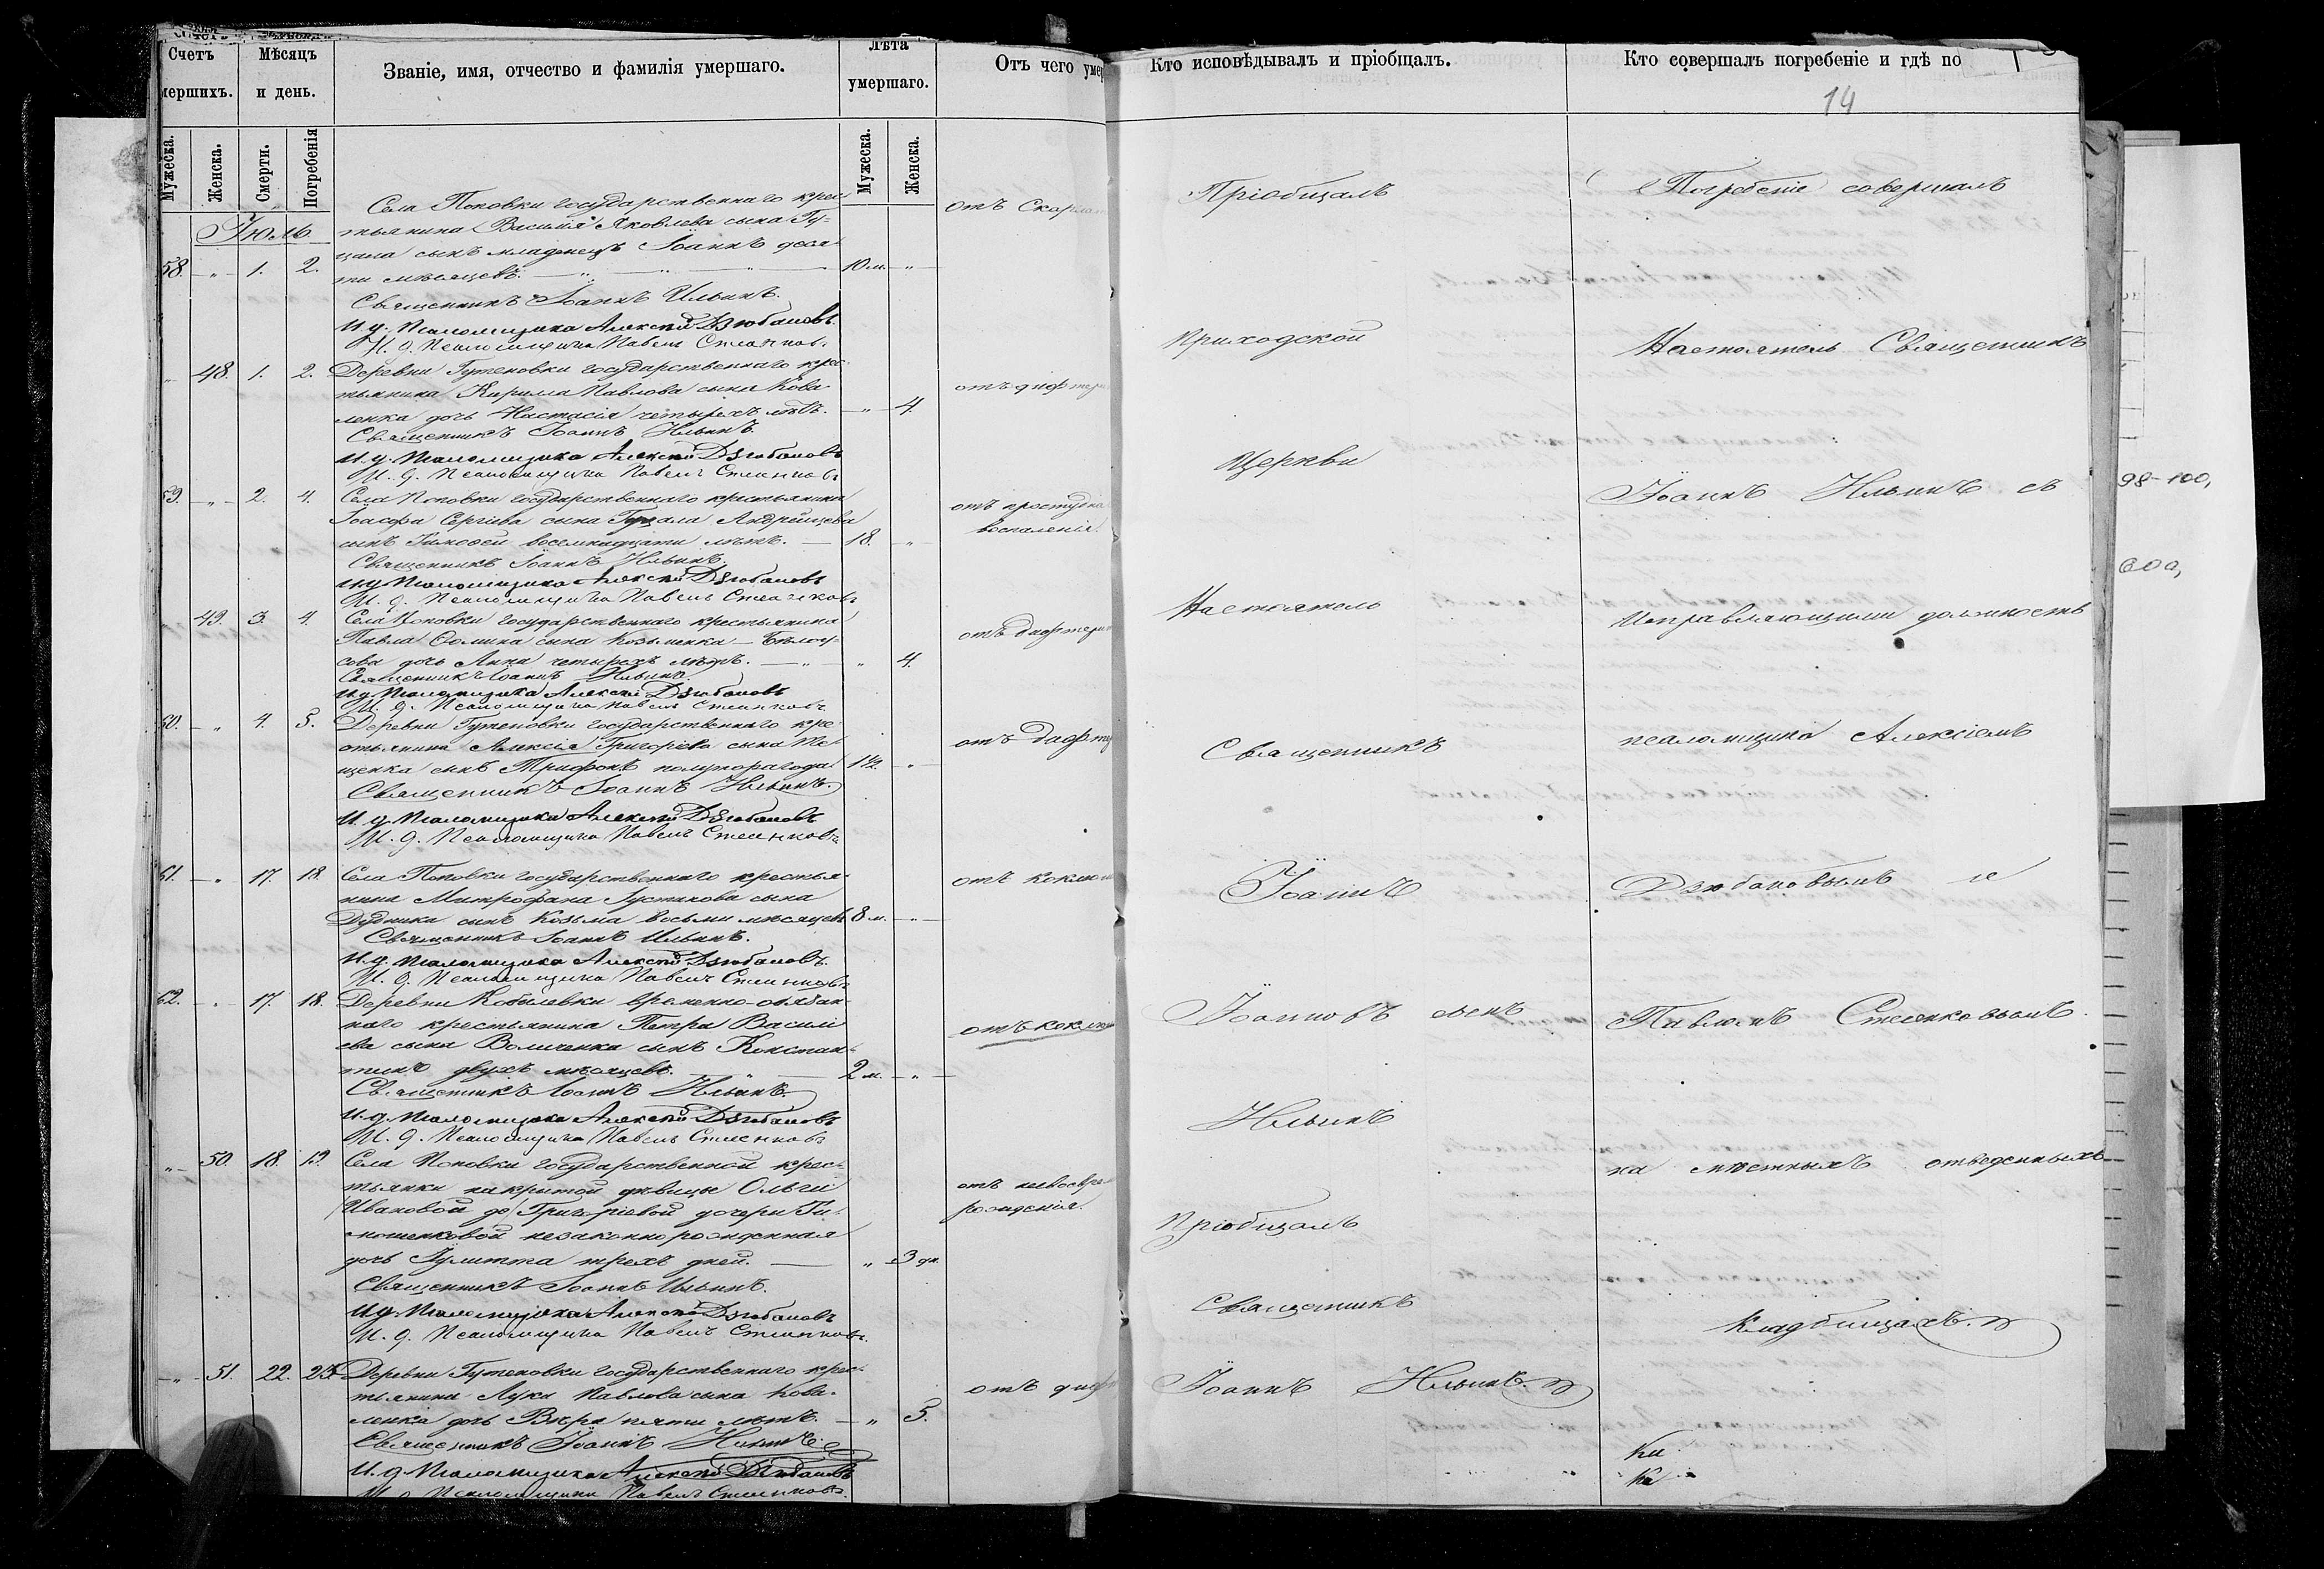 Счетъ
мершихъ.
Мѣсяцъ
и день.
Званіе, имя, отчество и фамилія умершаго.
Лѣта
умершаго.
Отъ чего умер
Мужеска.
Женска.
Смерти.
Погребенія
Мужеска.
Женска.
Іюль
Села Поповки государственнаго крес-
тьянина Василія Яковлева сына Гу-
цала сынъ младенецъ Іоаннъ деся-
58. „ 1. 2. ти мѣсяцевъ. 10 м. „
отъ Скарлат
Священникъ Іоаннъ Ильинъ.
И. д. Псаломщика Алексѣй Дзюбановъ
И. д. Псаломщика Павелъ Стеанковъ
„ 48. 1. 2. Деревни Гутеновки государственнаго крес-
тьянина Кирилла Павлова сына Кова-
ленка дочь Настасія четырехъ лѣтъ. „ 4.
отъ дифтери
Священникъ Іоаннъ Ильинъ.
И. д. Псаломщика Алексѣй Дзюбановъ
И. д. Псаломщика Павелъ Стеанковъ
59. „ 2. 4. Села Поповки государственнаго крестьянина
Іоасафа Сергіева сына Гуцала Андрейцева
сынъ Тимофей восемнадцати лѣтъ. 18. „
отъ простудна
воспаленія.
Священникъ Іоаннъ Ильинъ.
И. д. Псаломщика Алексѣй Дзюбановъ
И. д. Псаломщика Павелъ Стеанковъ
49. 3. 4. Села Поповки государственнаго крестьянина
Павла Фомина сына Козьменка - Бѣлоу-
сова дочь Анна четырехъ лѣтъ. „ 4.
отъ дифтери
Священникъ Іоаннъ Ильинъ.
И. д. Псаломщика Алексѣй Дзюбановъ
И. д. Псаломщика Павелъ Стеанковъ
60. „ 4. 5. Деревни Гутеновки государственнаго кре-
стьянина Алексія Григоріева сына
щенка сынъ Трифонъ полуторагода. 1½. „
отъ дифт
Священникъ Іоаннъ Ильинъ.
И. д. Псаломщика Алексѣй Дзюбановъ
И. д. Псаломщика Павелъ Стеанковъ
61. „ 17. 18. Села Поповки государственнаго крестья-
нина Митрофана Іустинова сына
Дудника сынъ Козьма восьми мѣсяцевъ 8 м. „
отъ коклюш
Священникъ Іоаннъ Ильинъ.
И. д. Псаломщика Алексѣй Дзюбановъ
И. д. Псаломщика Павелъ Стеанковъ
62. „ 17. 18. Деревни Кобылевки временно-обязан-
наго крестьянина Петра Василі-
ева сына Величенка сынъ Констан-
тинъ двухъ мѣсяцевъ. 2 м. „
отъ коклю
Священникъ Іоаннъ Ильинъ.
И. д. Псаломщика Алексѣй Дзюбановъ
И. д. Псаломщика Павелъ Стеанковъ
„ 50. 18. 19. Села Поповки государственной крес-
тьянки накрытой дѣвицы Ольги
Ивановой до Григоріевой дочери Ти-
мошенковой незаконнорожденная
дочь Іулитта трехъ дней. „ 3 дн.
отъ несвоевре
рожденія.
Священникъ Іоаннъ Ильинъ.
И. д. Псаломщика Алексѣй Дзюбановъ
И. д. Псаломщика Павелъ Стеанковъ
„ 51. 22. 23. Деревни Гутеновки государственнаго крес-
тьянина Луки Павлова сына Кова-
ленка дочь Вѣра пяти лѣтъ. „ 5.
отъ диф
Священникъ Іоаннъ Ильинъ.
И. д. Псаломщика Алексѣй Дзюбановъ
И. д. Псаломщика Павелъ Стеанковъ
Кто исповѣдывалъ и пріобщалъ.
Кто совершалъ погребеніе и гдѣ по
14
Пріобщалъ
Приходской
Церкви
Настоятель
Священникъ
Іоаннъ
Іоанновъ сынъ
Ильинъ
Пріобщалъ
Священникъ
Іоаннъ Ильинъ.
Погребеніе совершалъ
Настоятель Священникъ
Іоаннъ Ильинъ съ
Исправляющими должность
псаломщика Алексіемъ
Дзюбановымъ и
Павломъ Стеанковымъ
на мѣстныхъ отведенныхъ
Кладбищахъ.
98-100,